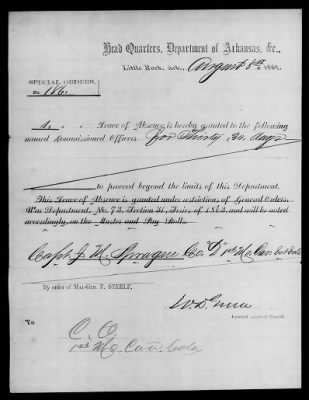 Head Quarters, Department of Arkansas, &c.,
Little Rock, Ark., August 5th 1864.
SPECIAL ORDERS,
No. 186.
1. . Leave of Absence is hereby granted to the following
named Commissioned Officers for Thirty 30 days
to proceed beyond the limits of this Department.
This Leave of Absence is granted under restrictions of General Orders,
War Department, No. 73, Section 31, Series of 1863, and will be noted
accordingly, on the Muster and Pay Roll.
Capt. J. M. Sprague Co. "D" 1st Mo. Cav.
By order of Maj.-Gen. F. STEELE.
W. D. Green
Assistant Adjutant General.
To
C. O.
1st Mo. Cav. Vols